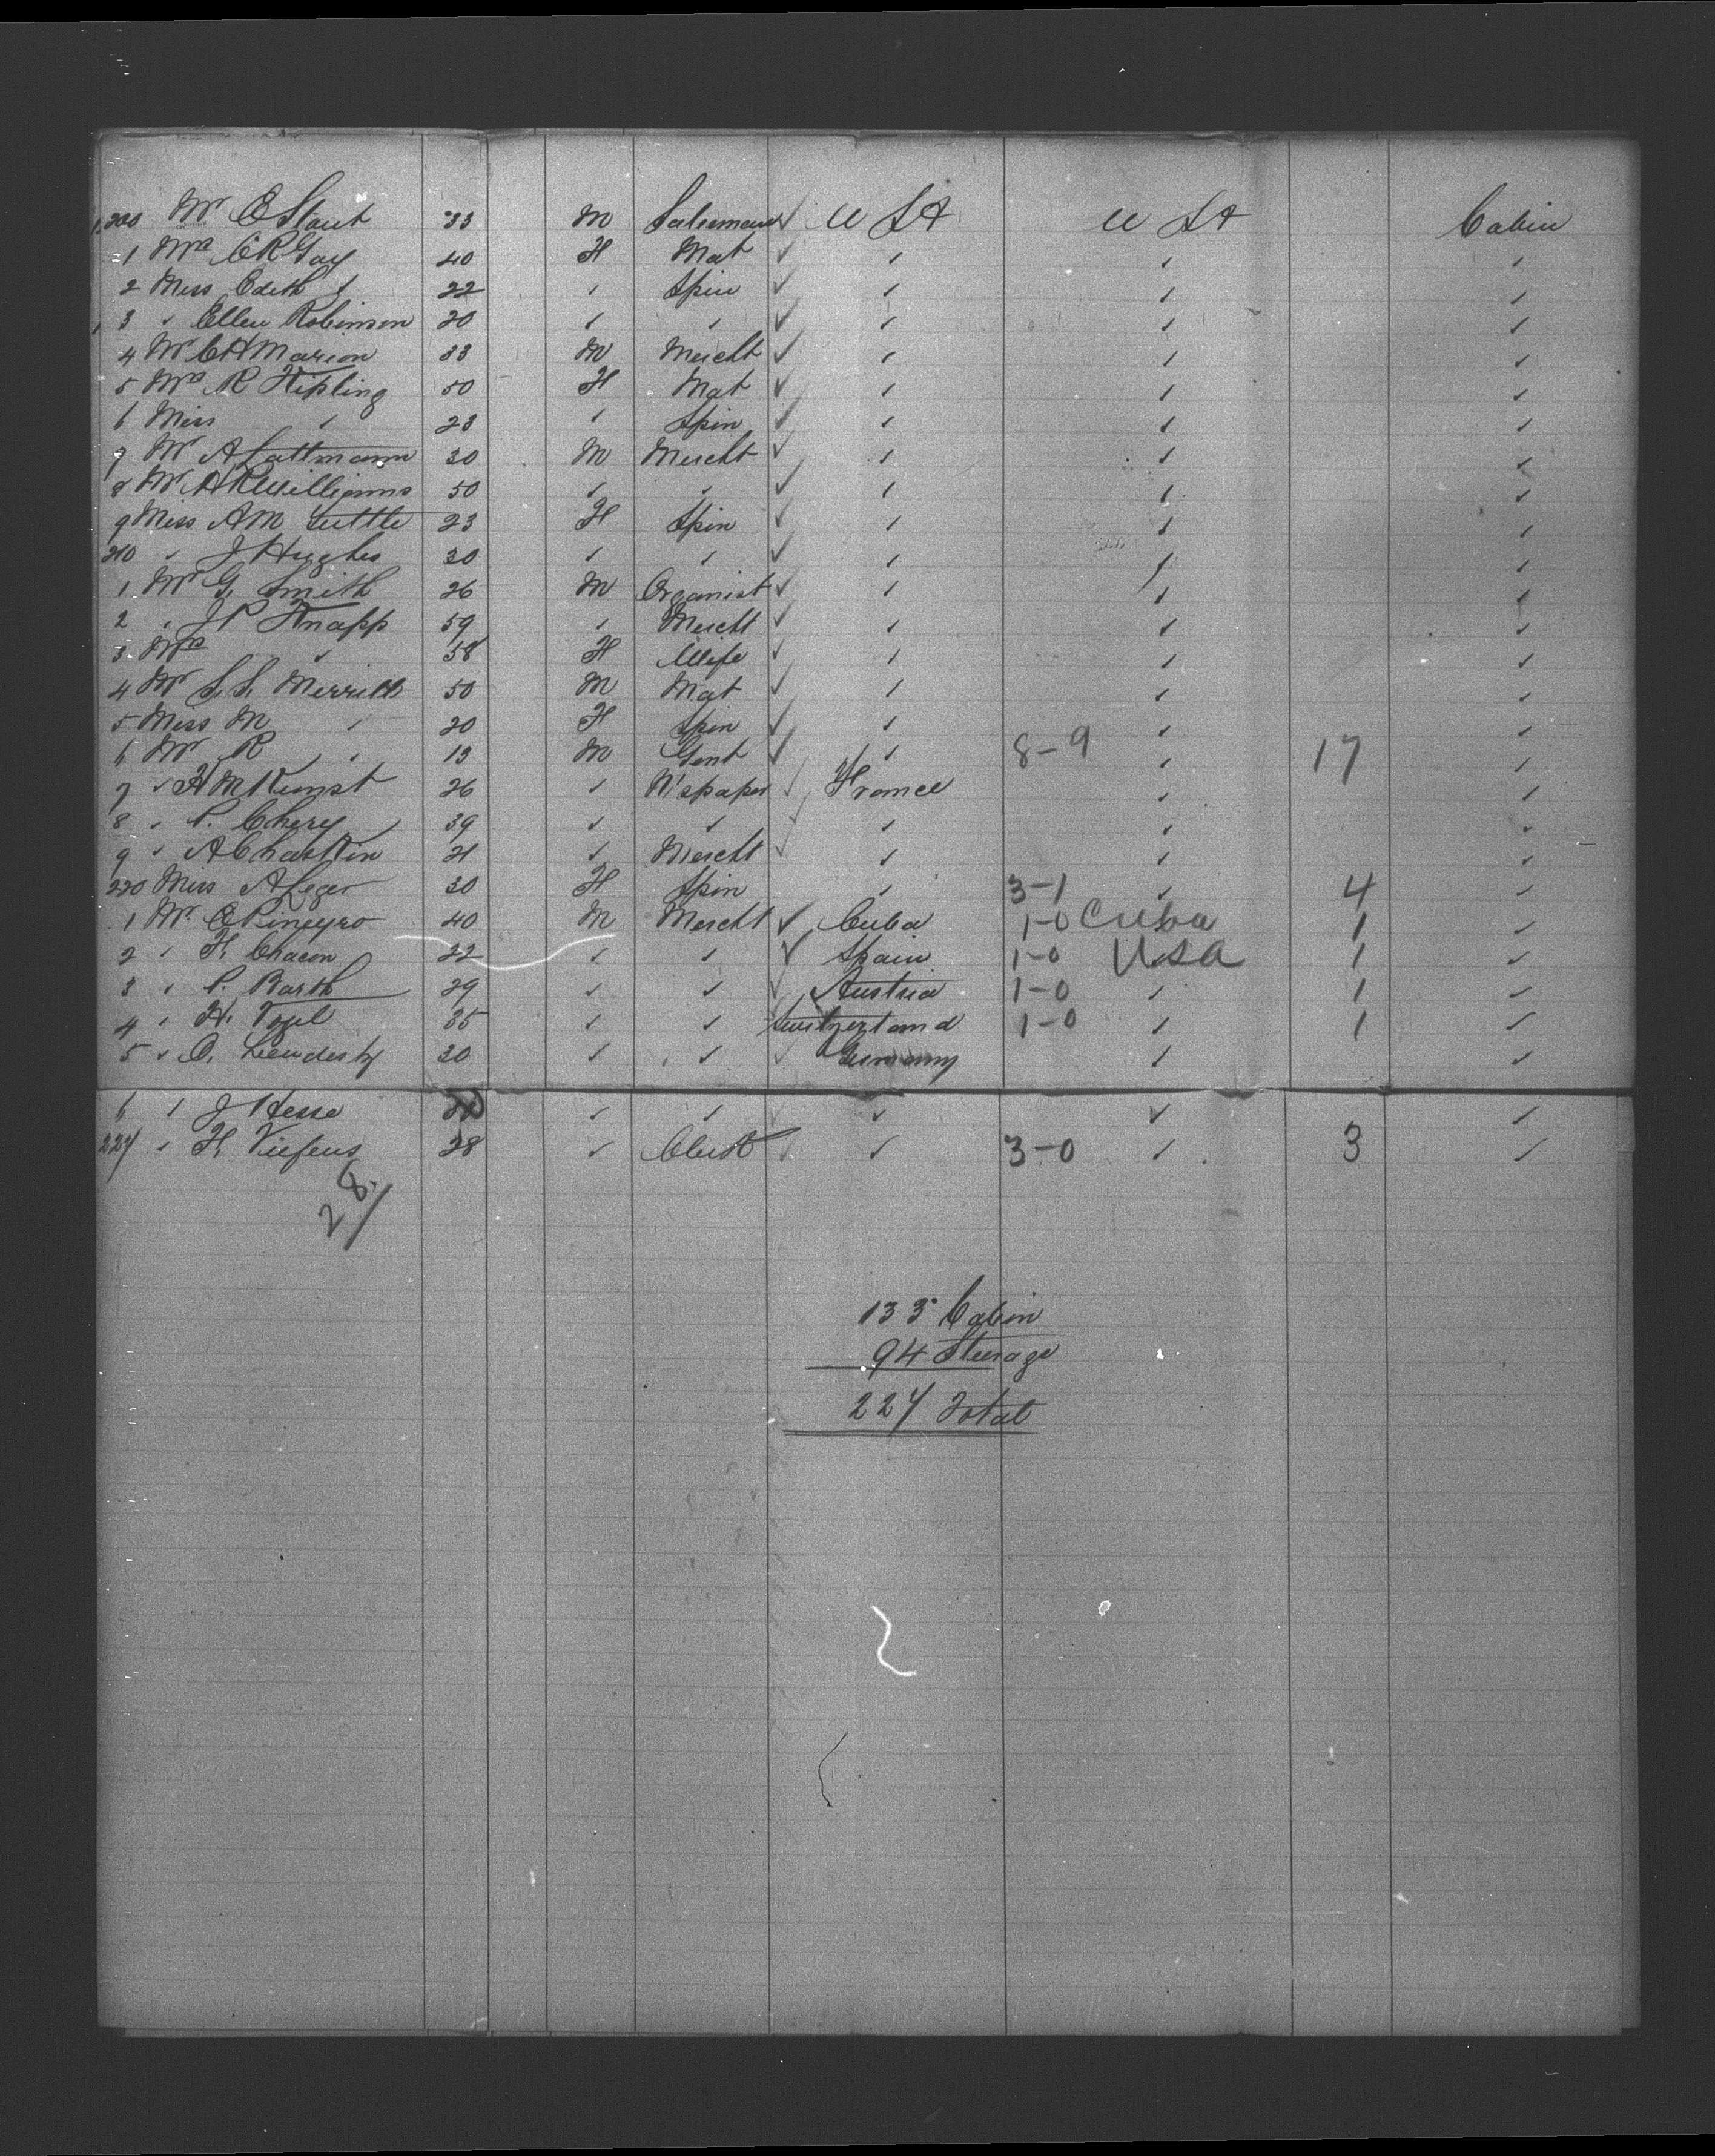 200 Mr E Staut 33 M Salesman ✓ U S A U S A Cabin
1 Mrs C R Gay 40 F Mat ✓ " " "
2 Miss Edith " 22 " Spin ✓ " " "
3 " Ellen Robinson 20 " " ✓ " " "
4 Mr C H Marion 33 M Mercht ✓ " " "
5 Mrs R Kipling 50 F Mat ✓ " " "
6 Miss " 23 " Spin ✓ " " "
7 Mr A Lattmann 30 M Mercht ✓ " " "
8 Mr H R Williams 50 " " ✓ " " "
9 Miss A M Tuttle 23 F Spin ✓ " " "
210 " J Hughes 30 " " ✓ " " "
1 Mr G. Smith 26 M Organist ✓ " " "
2 " J P Knapp 59 " Mercht ✓ " " "
3 Mrs " 58 F Wife ✓ " " "
4 Mr S. S. Merrill 50 M Mat ✓ " " "
5 Miss M " 20 F Spin ✓ " " "
6 Mr R " 13 M Gent ✓ " 8-9 " 17 "
7 " F M Kunst 26 " N'spaper ✓ France " "
8 " P. Chery 39 " " ✓ " " "
9 " A Chastin 21 " Mercht ✓ " " "
220 Miss A Leger 30 F Spin " 3-1 " 4 "
1 Mr. E Pineyro 40 M Mercht ✓ Cuba 1-0 Cuba 1 "
2 " F. Chacon 22 " " ✓ Spain 1-0 USA 1 "
3 " P. Barth 29 " " ✓ Austria 1-0 " 1 "
4 " H. Vogel 35 " " Switzerland 1-0 " 1 "
5 " O. 30 " " ✓ Germany " "
6 " J Hesse " " " " "
227 " H. Viefens 28 " Clerk " 3-0 " 3 "
28/
133 Cabin
94 Steerage
227 Total